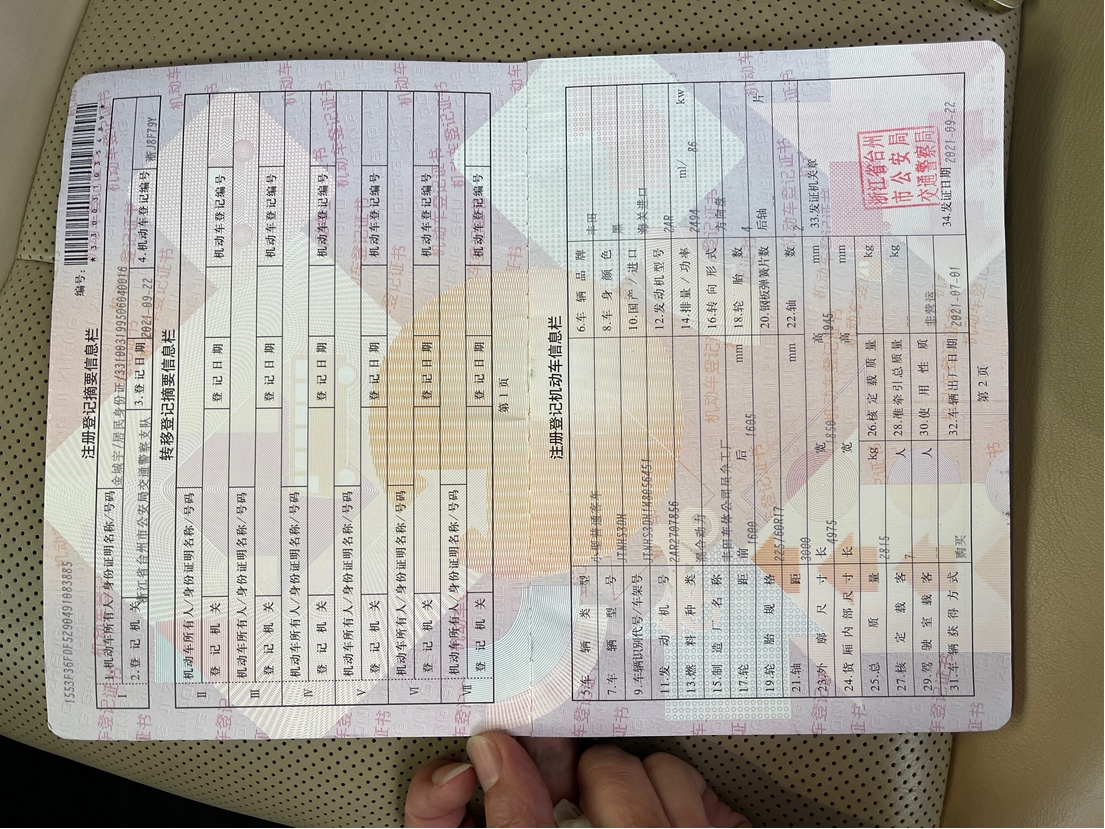 1553F36F0F5290491083885
注册登记摘要信息栏
编号:
Ⅰ
1.机动车所有人/身份证明名称/号码 金城宇/居民身份证/331003199506040016
2.登记机关 浙江省台州市公安局交通警察支队 3.登记日期 2021-09-22 4.机动车登记编号 浙J8F79Y
转移登记摘要信息栏
Ⅱ
机动车所有人/身份证明名称/号码
登记机关 登记日期 机动车登记编号
Ⅲ
机动车所有人/身份证明名称/号码
登记机关 登记日期 机动车登记编号
Ⅳ
机动车所有人/身份证明名称/号码
登记机关 登记日期 机动车登记编号
Ⅴ
机动车所有人/身份证明名称/号码
登记机关 登记日期 机动车登记编号
Ⅵ
机动车所有人/身份证明名称/号码
登记机关 登记日期 机动车登记编号
Ⅶ
机动车所有人/身份证明名称/号码
登记机关 登记日期 机动车登记编号
第 1 页
注册登记机动车信息栏
5.车辆类型 小型普通客车 6.车辆品牌 丰田
7.车辆型号 JTNHS3DH 8.车身颜色 黑
9.车辆识别代号/车架号 10.国产/进口 海关进口
11.发动机号 12.发动机型号
13.燃料种类 混合动力 14.排量/功率 2494 ml/ 86 kw
15.制造厂名称 丰田车体公司员弁工厂 16.转向形式 方向盘
17.轮距 前 1600 后 1605 mm 18.轮胎数 4
19.轮胎规格 225/60R17 20.钢板弹簧片数 后轴 片
21.轴距 3000 mm 22.轴数 2
23.外廓尺寸 长 4975 宽 1850 高 1945 mm 33.发证机关章
24.货厢内部尺寸 长 宽 高 mm
25.总质量 2815 kg 26.核定载质量 kg
27.核定载客 7 人 28.准牵引总质量 kg
29.驾驶室载客 人 30.使用性质 非营运
31.车辆获得方式 购买 32.车辆出厂日期 2021-07-01 34.发证日期 2021-09-22
浙江省台州
市公安局
交通警察局
第 2 页